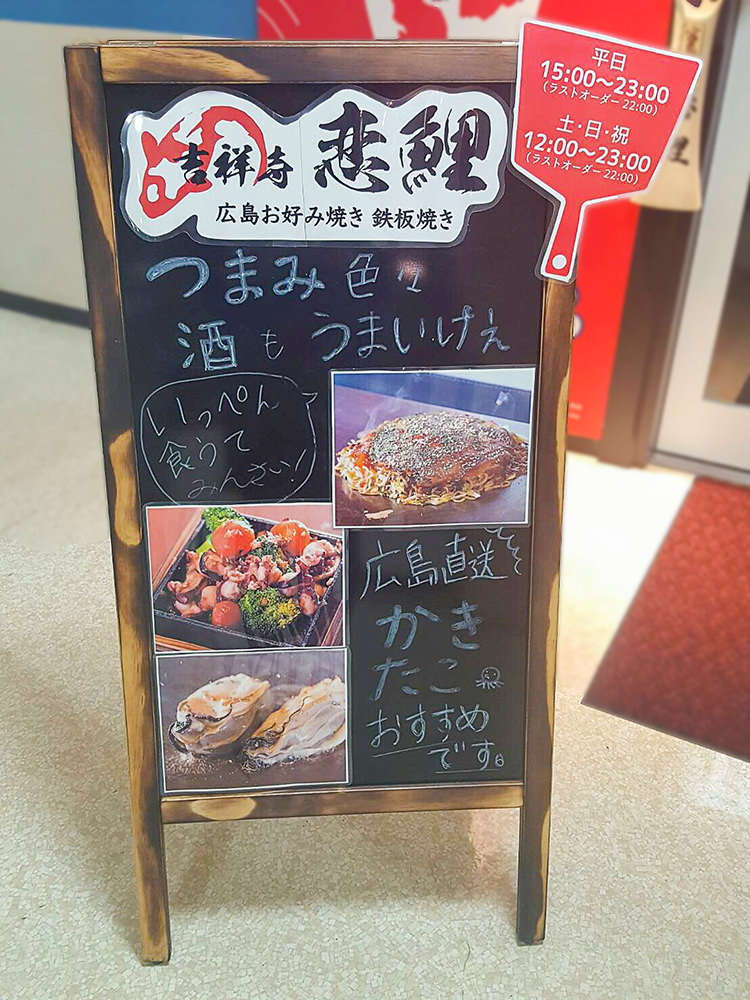 平日
15:00～23:00
(ラストオーダー 22:00)
土・日・祝
12:00～23:00
(ラストオーダー 22:00)
吉祥寺 恋鯉
広島お好み焼き 鉄板焼き
つまみ色々
酒もうまいけぇ
いっぺん
食うて
みんさい!
広島直送
かき
たこ
おすすめ
です。